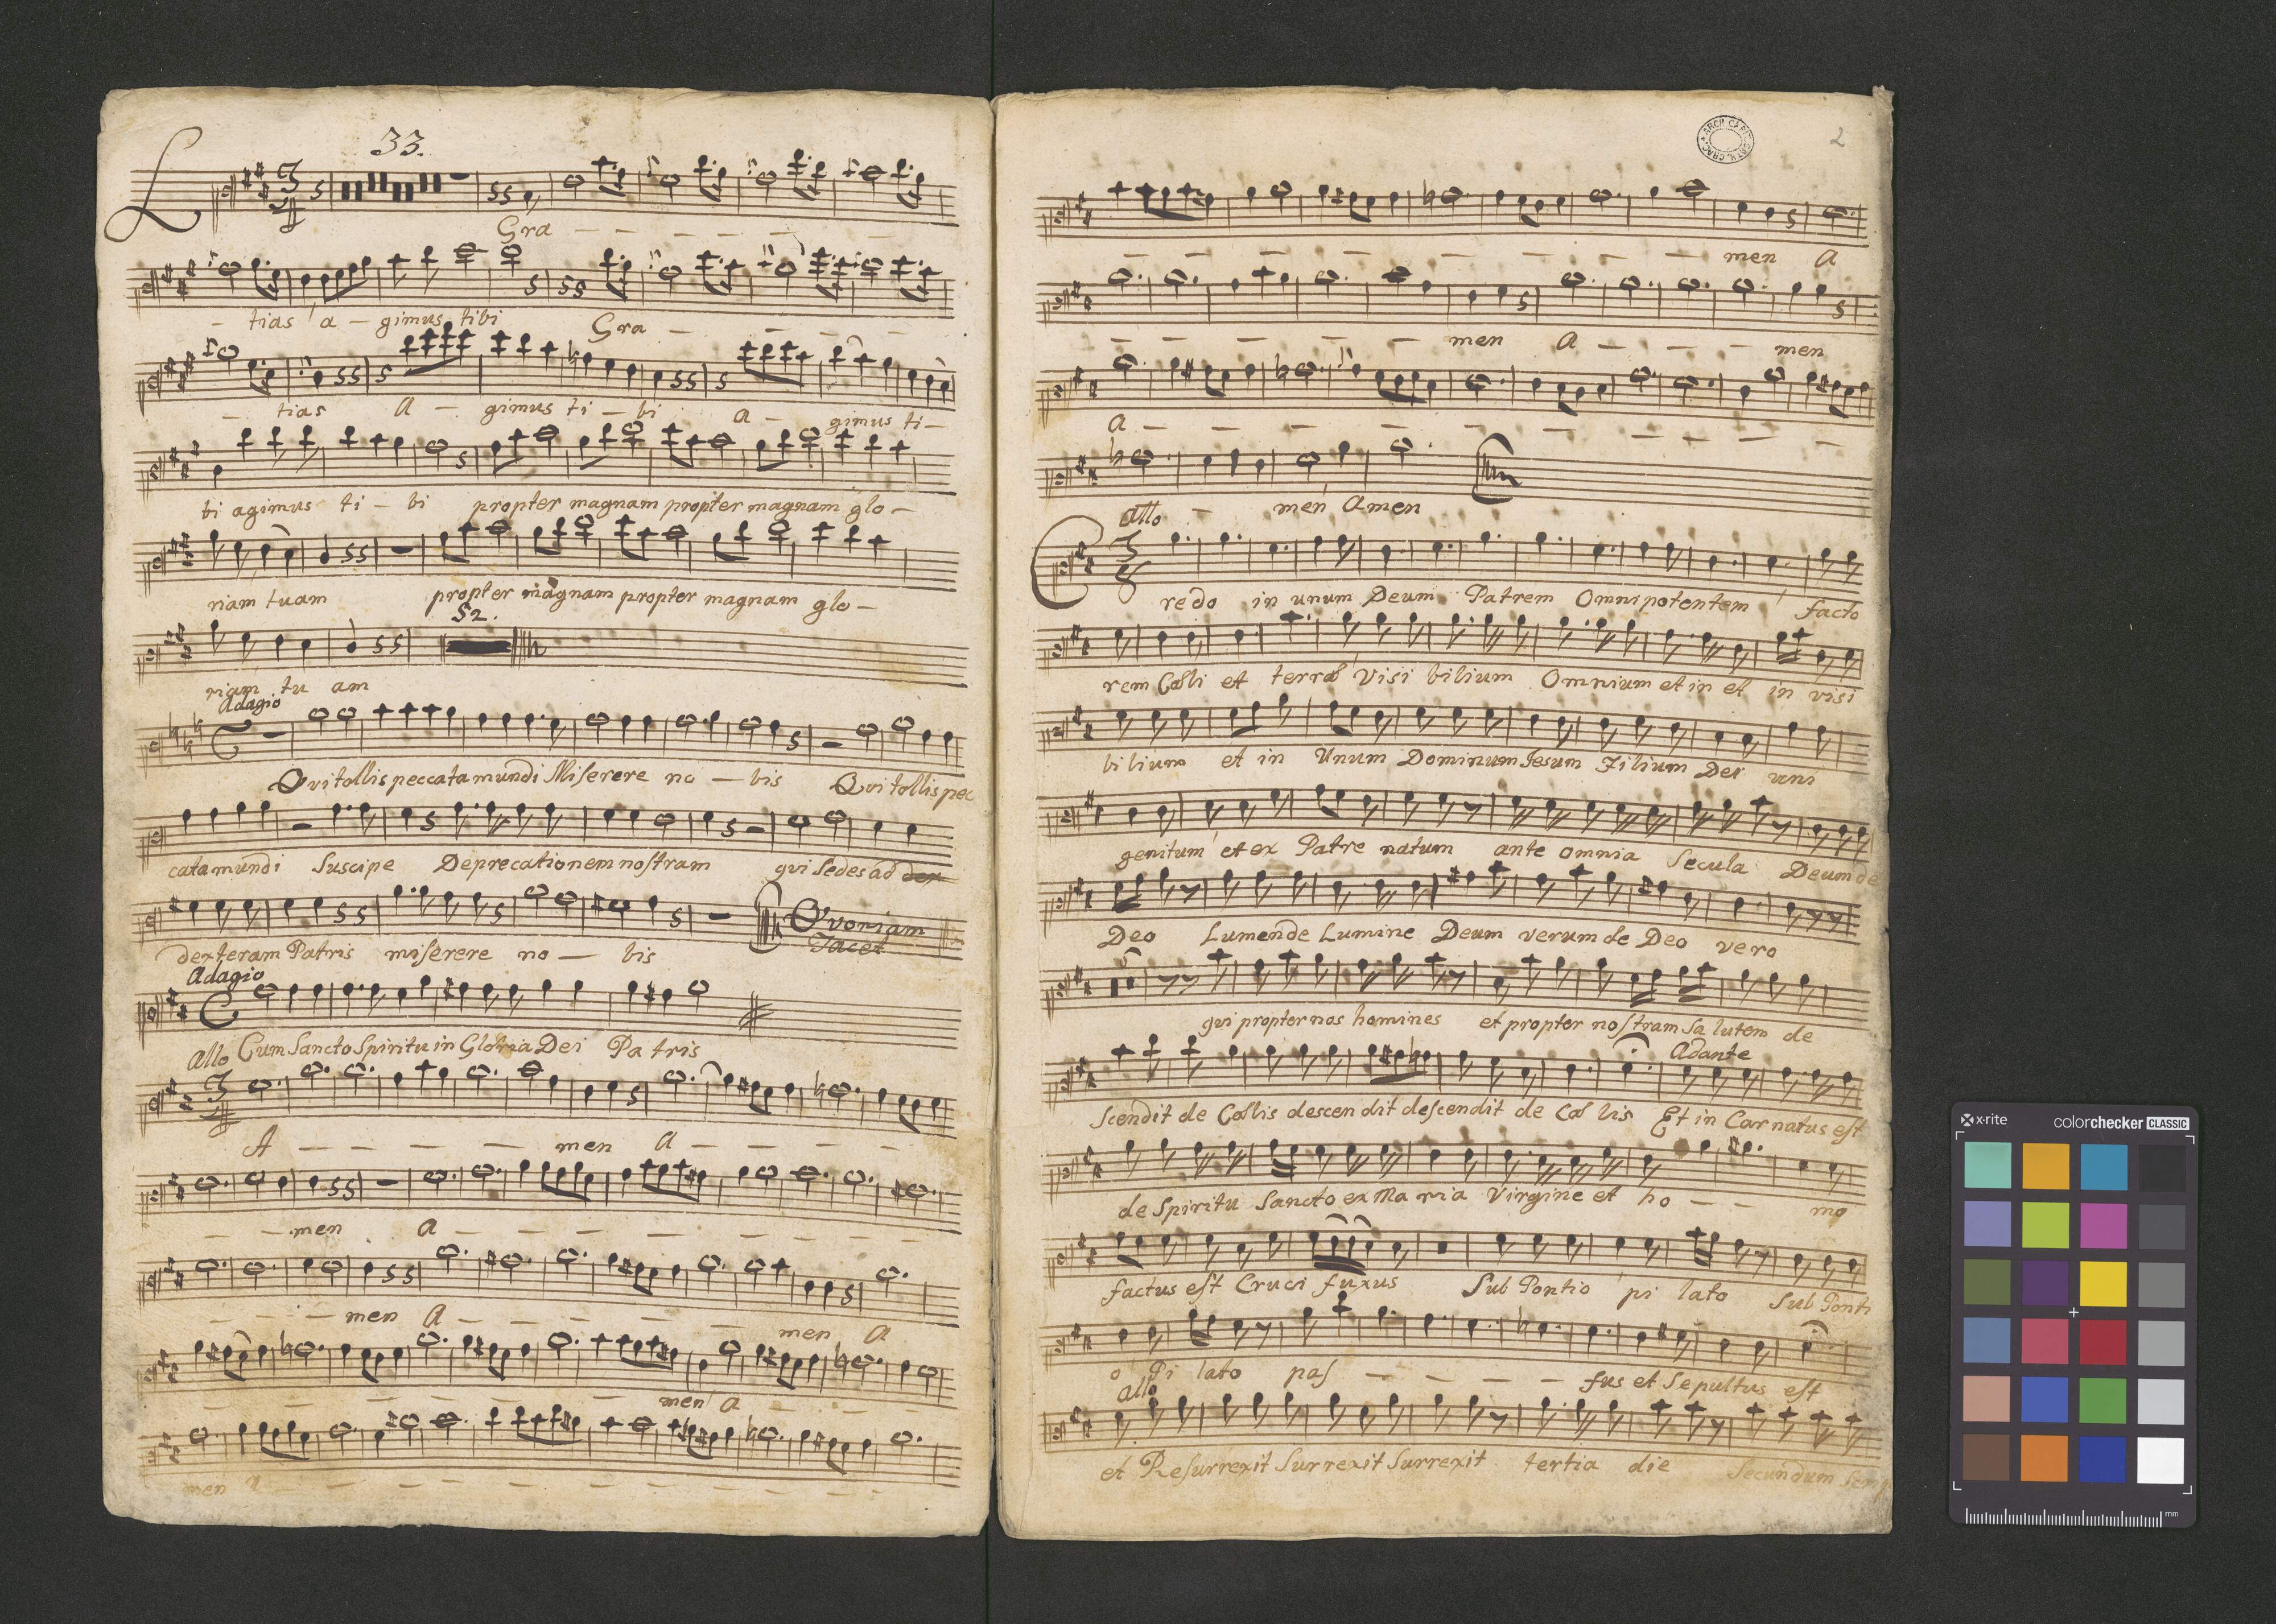 33.
Gra
tias a - gimus tibi Gra
tias A - gimus ti - bi a - gimus ti -
bi agimus ti - bi propter magnam propter magnam glo -
riam tuam propter magnam propter magnam glo -
52.
riam tu am
Adagio
Qui tollis peccata mundi Miserere no - bis Qui tollis pec
cata mundi Suscipe Deprecationem nostram qui Sedes ad dex
dexteram Patris miserere no - bis
Quoniam
Tacet
Adagio
Cum Sancto Spiritu in Gloria Dei Pa tris
Allo
A men A
men A
men A men A
men A
men A
ARCH CAPIT CATH. CRAC
2
men A
men A men
A
men Amen
Allo
Credo in unum Deum Patrem Omnipotentem facto
rem Cœli et terræ Visi bilium Omnium et in et in visi
bilium et in Unum Dominum Jesum Filium Dei uni
genitum et ex Patre natum ante omnia Secula Deum de
Deo Lumen de Lumine Deum verum de Deo vero
qui propter nos homines et propter nostram Sa lutem de
Adante
Scendit de Cœlis descen dit descendit de Cœ lis Et in Carnatus est
de Spiritu Sancto ex Ma ria Virgine et ho - - mo
factus est Cruci fixus Sub Pontio pi lato Sub Ponti
o Pi lato pas - - - - sus et Sepultus est
Allo
et Resurrexit Surrexit Surrexit tertia die Secundum Scrip
x-rite
colorchecker CLASSIC
mm